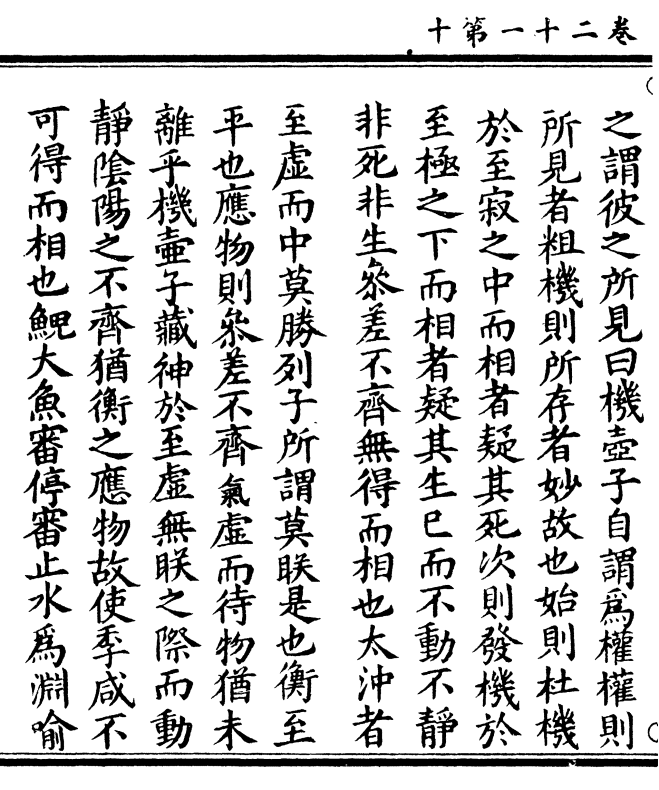 卷二十一第十
之謂彼之所見曰機壺子自謂爲權權則
所見者粗機則所存者妙故也始則杜機
於至寂之中而相者疑其死次則發機於
至極之下而相者疑其生已而不動不靜
非死非生叅差不齊無得而相也太沖者
至虛而中莫勝列子所謂莫眹是也衡至
平也應物則叅差不齊氣虛而待物猶未
離乎機壺子藏神於至虛無眹之際而動
靜陰陽之不齊猶衡之應物故使季咸不
可得而相也鯢大魚審停審止水爲淵喻